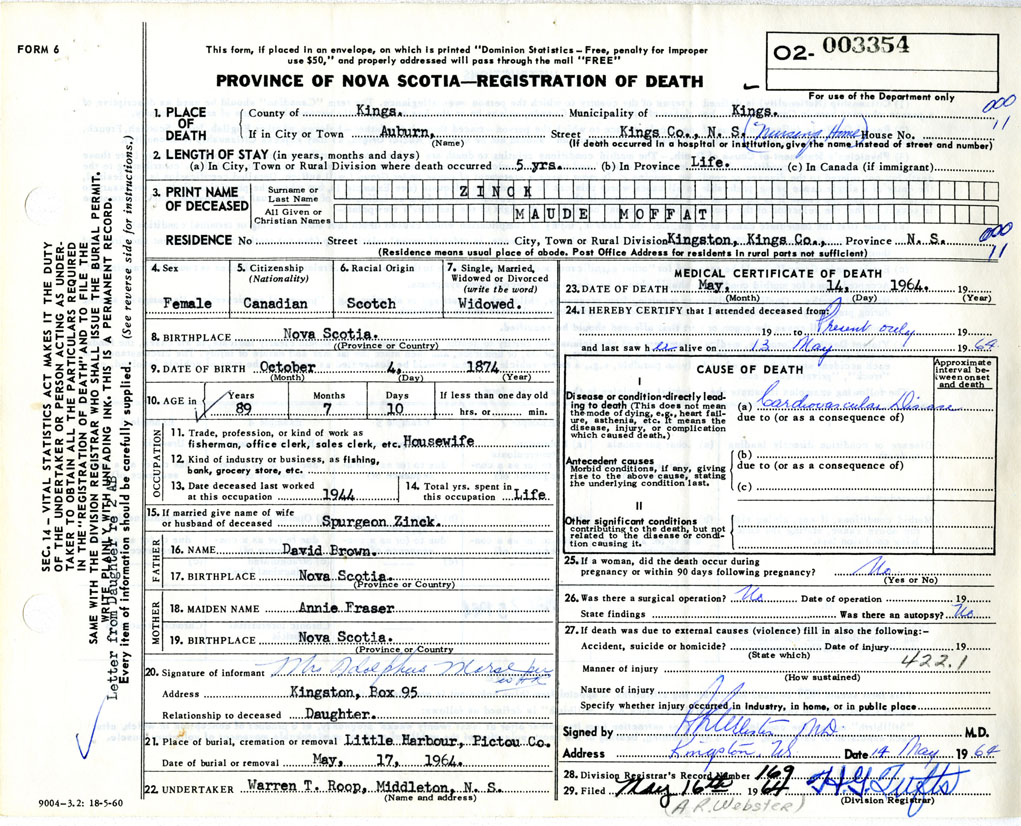 FORM 6
This form, if placed in an envelope, on which is printed "Dominion Statistics – Free, penalty for improper
use $50," and properly addressed will pass through the mail "FREE"
O2- 003354
PROVINCE OF NOVA SCOTIA—REGISTRATION OF DEATH
For use of the Department only
1. PLACE OF DEATH
County of Kings. Municipality of Kings. 000
If in City or Town Auburn, Street Kings Co., N. S. (Nursing Home) House No. 11
(Name) (If death occurred in a hospital or institution, give the name instead of street and number)
2. LENGTH OF STAY (in years, months and days)
(a) In City, Town or Rural Division where death occurred 5 yrs. (b) In Province Life. (c) In Canada (if immigrant)
3. PRINT NAME OF DECEASED
Surname or Last Name ZINCK
All Given or Christian Names MAUDE MOFFAT
RESIDENCE No Street City, Town or Rural Division Kingston, Kings Co., Province N. S. 000 11
(Residence means usual place of abode. Post Office Address for residents in rural parts not sufficient)
4. Sex
Female
5. Citizenship
(Nationality)
Canadian
6. Racial Origin
Scotch
7. Single, Married,
Widowed or Divorced
(write the word)
Widowed.
8. BIRTHPLACE Nova Scotia.
(Province or Country)
9. DATE OF BIRTH October 4, 1874
(Month) (Day) (Year)
10. AGE in Years Months Days If less than one day old
89 7 10 hrs. or min.
OCCUPATION
11. Trade, profession, or kind of work as
fisherman, office clerk, sales clerk, etc. Housewife
12. Kind of industry or business, as fishing,
bank, grocery store, etc.
13. Date deceased last worked
at this occupation 1944
14. Total yrs. spent in
this occupation Life
15. If married give name of wife
or husband of deceased Spurgeon Zinck.
FATHER
16. NAME David Brown.
17. BIRTHPLACE Nova Scotia.
(Province or Country)
MOTHER
18. MAIDEN NAME Annie Fraser
19. BIRTHPLACE Nova Scotia.
(Province or Country)
20. Signature of informant Mrs Adolphus
Address Kingston, Box 95
Relationship to deceased Daughter.
21. Place of burial, cremation or removal Little Harbour, Pictou Co.
Date of burial or removal May, 17, 1964.
22. UNDERTAKER Warren T. Roop, Middleton, N. S.
(Name and address)
MEDICAL CERTIFICATE OF DEATH
23. DATE OF DEATH May, 14, 1964.
(Month) (Day) (Year)
24. I HEREBY CERTIFY that I attended deceased from Present only
19 to 19
and last saw her alive on 13 May 1964
CAUSE OF DEATH
Approximate
interval be-
tween onset
and death
I
Disease or condition directly lead-
ing to death (This does not mean
the mode of dying, e.g., heart fail-
ure, asthenia, etc. It means the
disease, injury, or complication
which caused death.)
(a) Cardiovascular Disease
due to (or as a consequence of)
Antecedent causes
Morbid conditions, if any, giving
rise to the above cause, stating
the underlying condition last.
(b)
due to (or as a consequence of)
(c)
II
Other significant conditions
contributing to the death, but not
related to the disease or condi-
tion causing it.
25. If a woman, did the death occur during
pregnancy or within 90 days following pregnancy? No
(Yes or No)
26. Was there a surgical operation? No Date of operation 19
State findings Was there an autopsy? No
27. If death was due to external causes (violence) fill in also the following:–
Accident, suicide or homicide? Date of injury 19
(State which) 422.1
Manner of injury
(How sustained)
Nature of injury
Specify whether injury occurred in industry, in home, or in public place
Signed by M.D. M.D.
Address Kingston, NS. Date 14 May 1964
28. Division Registrar's Record Number 169
29. Filed May 16th 1964 H G Tufts
(A.R. Webster) (Division Registrar)
9004–3.2: 18-5-60
SEC. 14 – VITAL STATISTICS ACT MAKES IT THE DUTY
OF THE UNDERTAKER OR PERSON ACTING AS UNDER-
TAKER TO OBTAIN ALL THE PARTICULARS REQUIRED
IN THE "REGISTRATION OF DEATH" AND TO FILE THE
SAME WITH THE DIVISION REGISTRAR WHO SHALL ISSUE THE BURIAL PERMIT.
WRITE PLAINLY WITH UNFADING INK. THIS IS A PERMANENT RECORD.
Letter from Daughter re 2 AB
Every item of information should be carefully supplied. (See reverse side for instructions.)